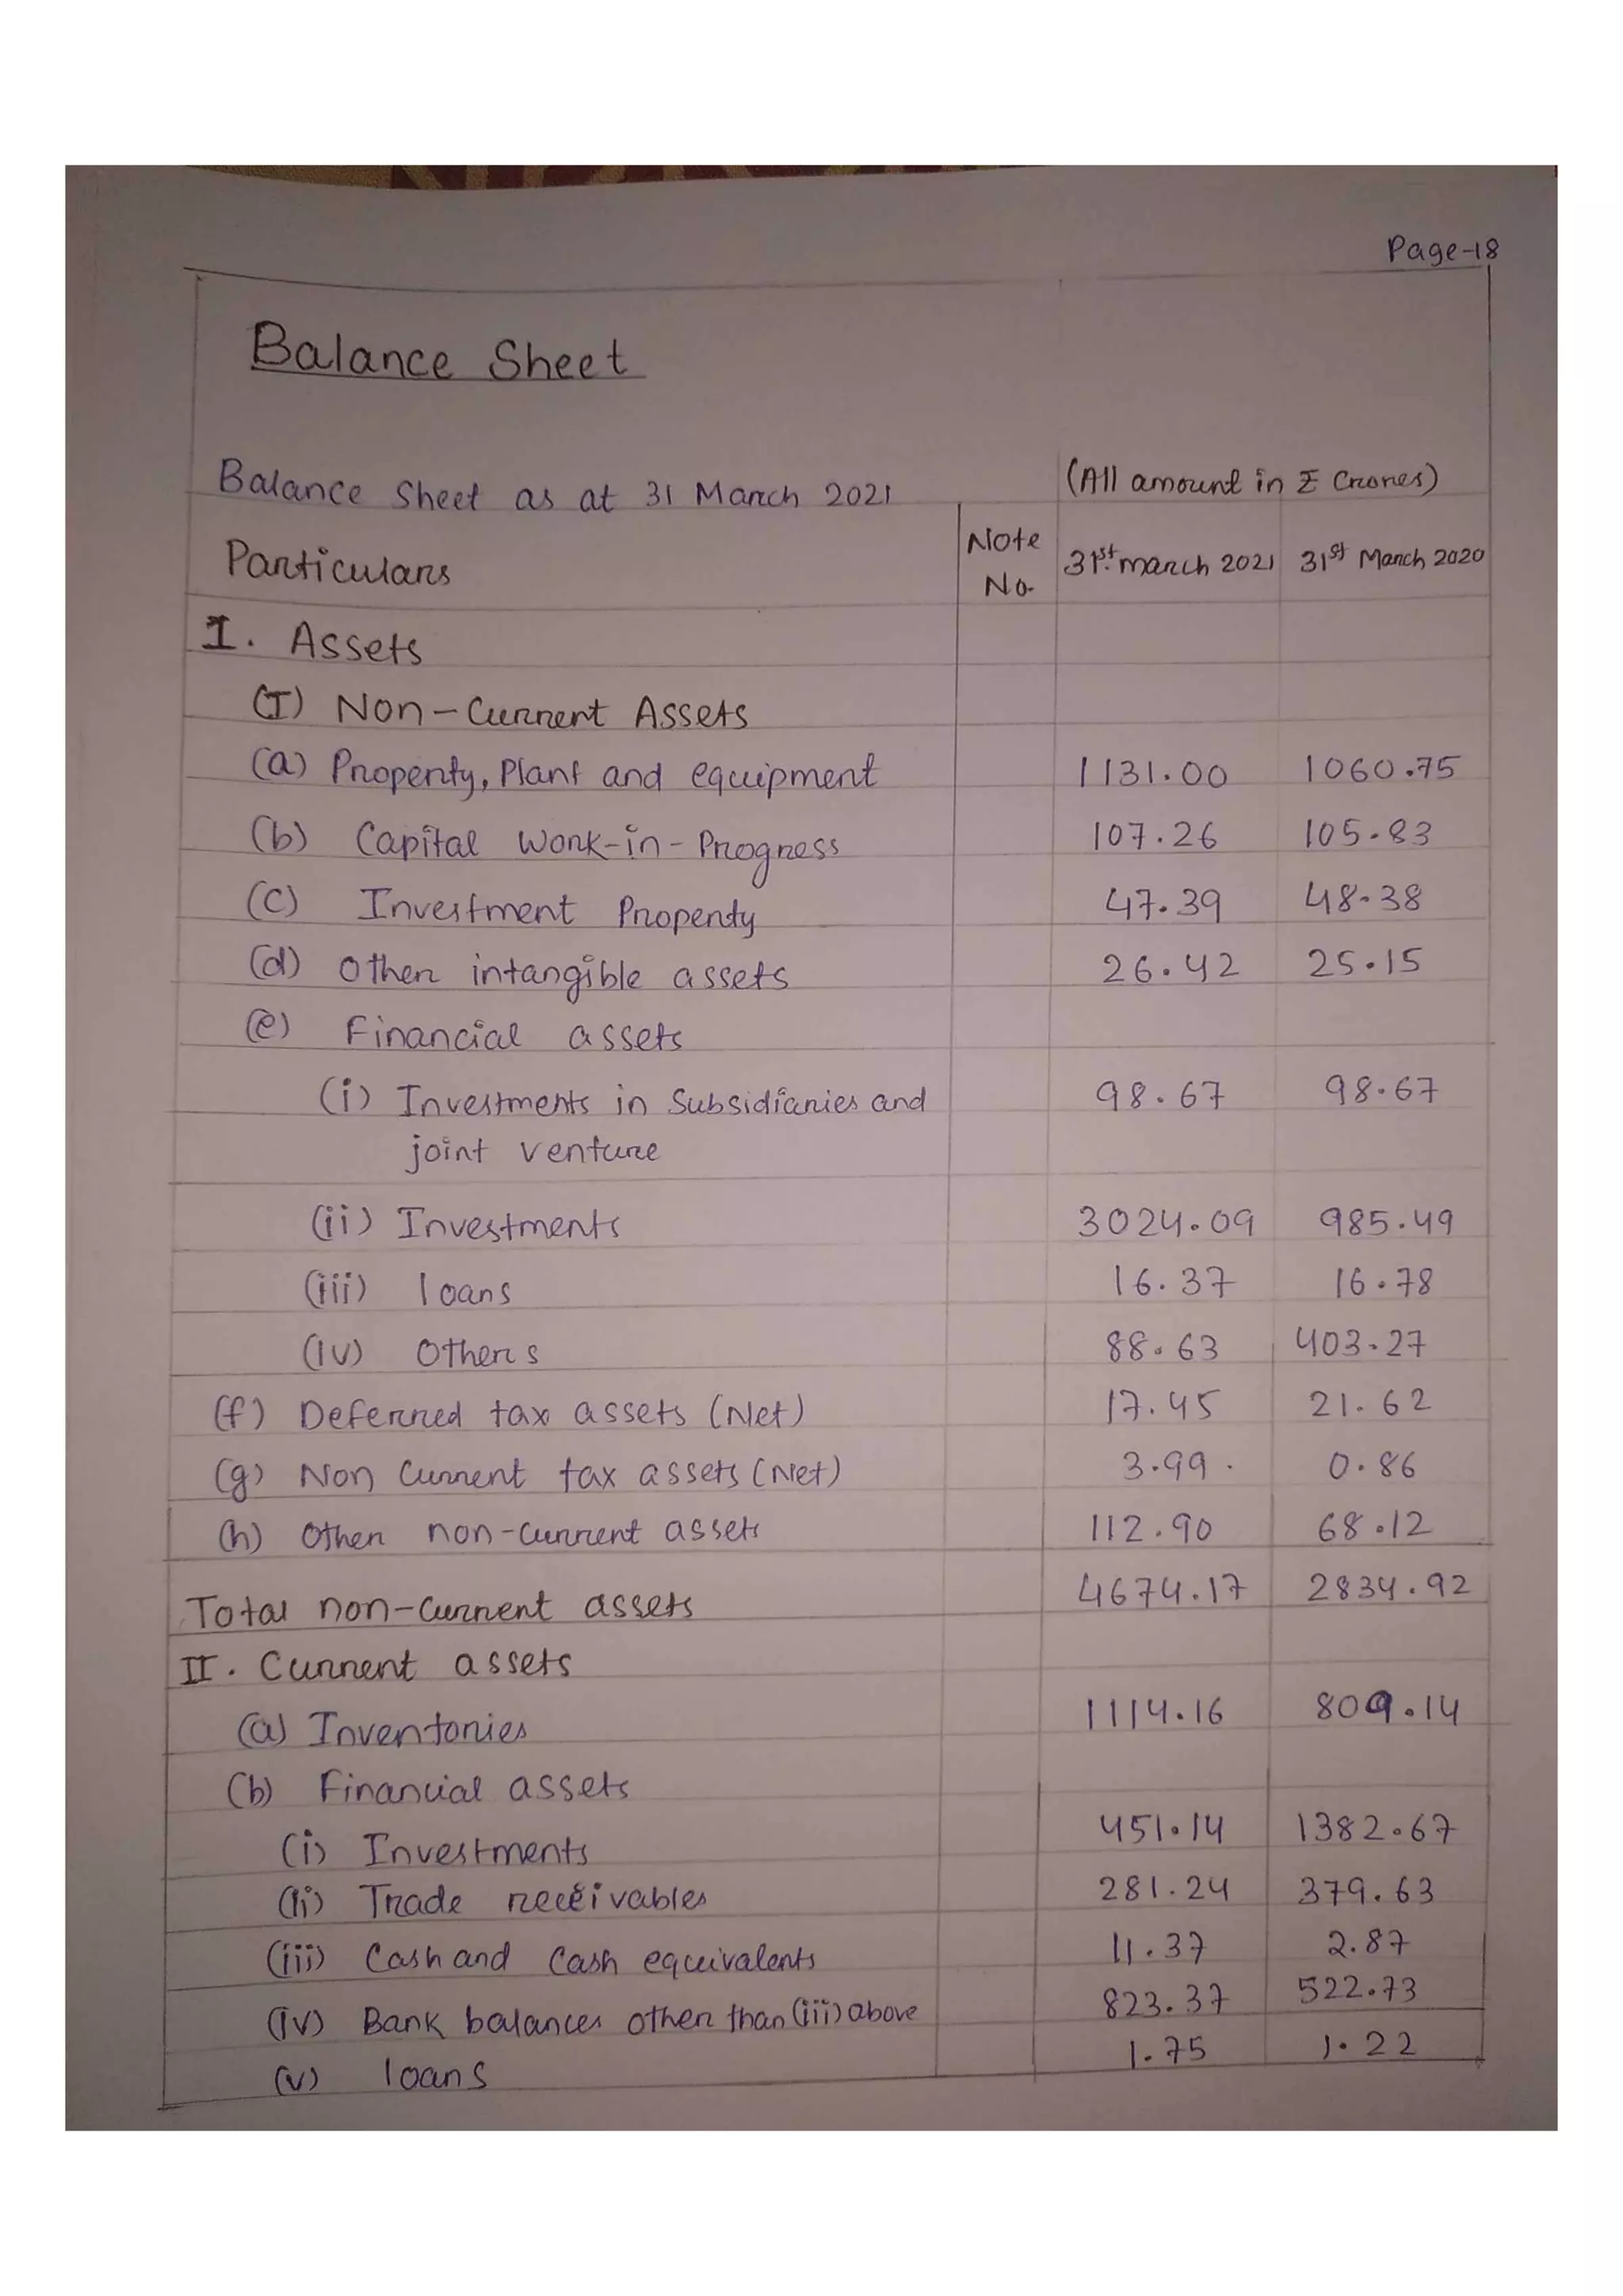 Page-18
Balance Sheet
Balance Sheet as at 31 March 2021 (All amount in ₹ Crores)
Particulars Note No. 31st march 2021 31st March 2020
I. Assets
(I) Non-Current Assets
(a) Property, Plant and equipment 1131.00 1060.75
(b) Capital Work-in-Progress 107.26 105.83
(c) Investment Property 47.39 48.38
(d) Other intangible assets 26.42 25.15
(e) Financial assets
(i) Investments in Subsidiaries and 98.67 98.67
joint venture
(ii) Investments 3024.09 985.49
(iii) loans 16.37 16.78
(iv) Others 88.63 403.27
(f) Deferred tax assets (Net) 17.45 21.62
(g) Non Current tax assets (Net) 3.99 0.86
(h) Other non-current assets 112.90 68.12
Total non-current assets 4674.17 2834.92
II. Current assets
(a) Inventories 1114.16 809.14
(b) Financial assets
(i) Investments 451.14 1382.67
(ii) Trade receivables 281.24 379.63
(iii) Cash and Cash equivalents 11.37 2.87
(iv) Bank balances other than (iii) above 823.37 522.73
(v) loans 1.75 1.22